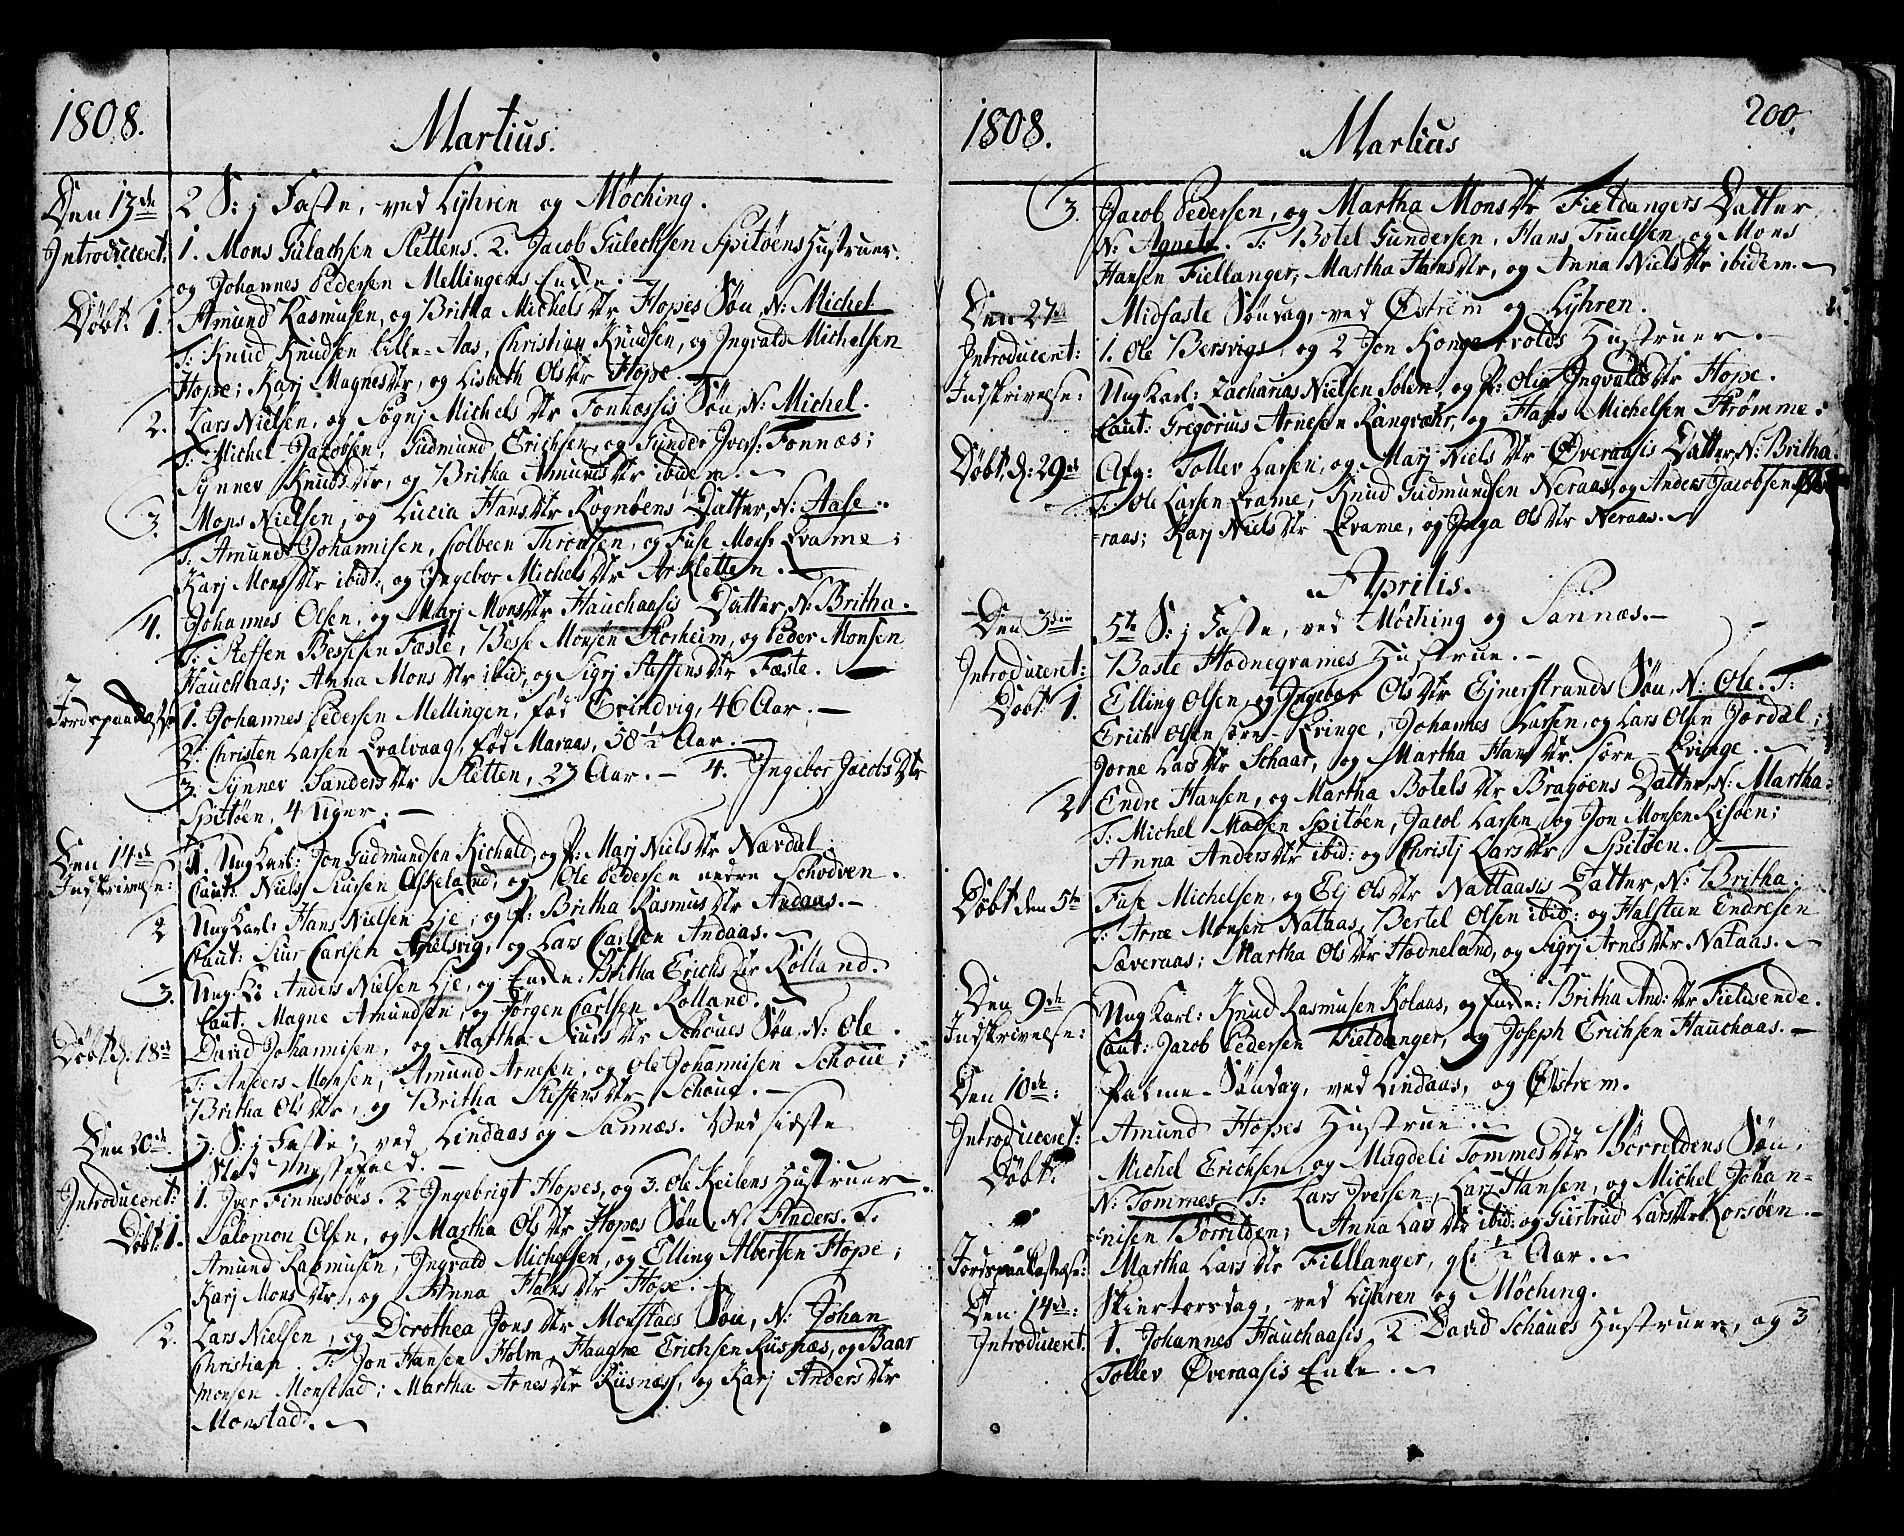 1808.
Martius.
Den 13de 2 S: j Faste, ved Lyhren og Möching.
Introduceret: 1. Mons Gulachsen Slettens. 2. Jacob Gulechsen Spitöens Hustruer.
og Johannes Pedersen Mellingens Encke.
Döbt: 1. Amund Rasmusen, og Britha Michels Dtr Hopes Sön, N: Michel
T: Knud Knudsen Lille-Aas, Christian Knudsen, og Ingvald Michelsen
Hope; Karj Magnes Dtr, og Lisbeth Ols Dtr Hope.
2. Lars Nielsen, og Sögnj Michels Dtr Fonnæssis Sön, N: Michel.
T: Michel Jacobsen, Gudmund Erichsen, og Gunder Ivers: Fonnæs;
Synnev Knuds Dtr, og Britha Amunds Dtr ibidem.
3. Mons Nielsen, og Lucia Hans Dtr Rognöens Datter, N: Aase.
T: Amund Johannisen, Colbeen Thronsen, og Fuse Mons: Qvame;
Karj Mons Dtr ibid:, og Ingebor Michels Dtr Arsletten.
4. Johannes Olsen, og Marj Mons Dtr Hauchaasis Datter, N: Britha.
T: Steffen Bessesen Fæste, Besse Monsen Storheim, og Peder Monsen
Hauchaas; Anna Mons Dtr ibid:, og Sigrj Steffens Dtr Fæste.
Jordspaakastelse 1. Johannes Pedersen Mellingen, föd Evindvig, 46 Aar.
2. Christen Larsen Qvalvaag, föd Maraas, 58 1/2 Aar.
3. Synnev Sanders Dtr Sletten, 23 Aar. — 4. Ingebor Jacobs Dtr
Spitöen, 4 Uger.
Den 14de 1. Ung Karl: Jon Gudmundsen Kichald, og P: Marj Niels Dtr Nævdal.
Indskrivelse: Caut: Niels Siursen Askeland, og Ole Pedersen nedre Schodven.
2 Ung Karl: Hans Nielsen Lje, og P: Britha Rasmus Dtr Andaas.
Caut: Siur Carlsen, og Lars Carlsen Andaas.
3. Ung: K: Anders Nielsen Lje, og Encke: Britha Erichs Dtr Rölland.
Caut: Magne Amundsen, og Jörgen Carlsen Rölland.
Döbt d. 18de David Johannisen, og Martha Siurs Dtr Schoues Sön, N: Ole.
T: Anders Monsen, Amund Arnesen, og Ole Johannisen Schoue;
Britha Ols Dtr, og Britha Steffens Dtr Schoue.
Den 20de 3. S: j Faste, ved Lindaas og Sannæs. Ved sidste
Stæd Messefald.
Introduceret: 1. Iver Finnesböes. 2 Ingebrigt Hopes, og 3. Ole Keilens Hustruer.
Döbt: 1. Salomon Olsen, og Martha Ols Dtr Hopes Sön, N: Anders. T:
Amund Rasmusen, Ingvald Michelsen, og Elling Albersen Hope;
Karj Mons Dtr, og Anna Hans Dtr Hope.
2. Lars Nielsen, og Dorothea Jons Dtr Monstads Sön, N: Johan
Christian. T: Jon Hansen Holm, Haagne Erichsen Risnæs, og Baar
Monsen Monstad; Martha Arnes Dtr Risnæs, og Karj Anders Dtr
Monstad.
1808. 200.
Martius
3. Jacob Pedersen, og Martha Mons Dtr Fieldangers Datter
N: Agnete. T: Botel Gundersen, Hans Truelsen, og Mons
Hansen Fiellanger, Martha Hans Dtr, og Anna Niels Dtr ibidem.
Den 27de Midfaste Söndag, ved Östrem og Lyhren.
Introduceret: 1. Ole Bersvigs, og 2 Jon Kongsvolds Hustruer.
Indskrivelse: Ung Karl: Zacharias Nielsen Solem, og P: Olia Ingvalds Dtr Hope.
Caut: Gregorius Arnesen Rangvahr, og Hans Michelsen Strömme.
Döbt d: 29de Afg: Tollev Larsen, og Marj Niels Dtr Överaasis Datter, N: Britha.
T: Ole Larsen Qvame, Knud Gudmundsen Neraas, og Anders Jacobsen
raas; Karj Niels Dtr Qvame, og Inga Ols Dtr Neraas.
Aprilis.
Den 3die 5te S: j Faste, ved Möching og Sannæs.
Introduceret: Baste Hodnegrames Hustrue.
Döbt 1. Elling Olsen, og Ingebor Ols Dtr Ejnerstrands Sön, N: Ole. T:
Erich Olsen söre-Qvinge, Johannes Larsen, og Lars Olsen Jordal;
Jorne Lars Dtr Schaar, og Martha Hans Dtr söre-Qvinge.
2 Endre Hansen, og Martha Botels Dtr Bragöens Datter, N: Martha.
T: Michel Madsen Spitöen, Jacob Larsen, og Jon Monsen Risöen;
Anna Anders Dtr ibid: og Christj Lars Dtr Spitöen.
Döbt den 5te Fuse Michelsen, og Elj Ols Dtr Nattaasis Datter, N: Britha;
T: Arne Monsen Nataas, Bertel Olsen ibid: og Halsteen Endresen
Sæveraas; Martha Ols Dtr Hodneland, og Sigrj Arnes Dtr Nataas.
Den 9de Ung Karl: Knud Rasmusen Kolaas, og Encke: Britha And: Dtr Fieldsende.
Indskrivelse: Caut: Jacob Pedersen Fieldanger, og Joseph Erichsen Hauchaas.
Den 10de: Palme-Söndag, ved Lindaas, og Östrem.
Introduceret: Amund Hopes Hustrue.
Döbt: Michel Erichsen, og Magdeli Tommes Dtr Börrildens Sön,
N: Tommes. T: Lars Iversen, Lars Hansen, og Michel Johan-
nisen Börrilden; Anna Lars Dtr ibid: og Giertrud Lars Dtr Korsöen.
Jordspaakastelse: Martha Lars Dtr Fiellanger, gl: 1/2 Aar.
Den 14de: Skiertorsdag, ved Lyhren og Möching.
Introduceret. 1. Johannes Hauchaasis, 2 David Schoues Hustruer, og 3
Tollev Överaasis Enke.